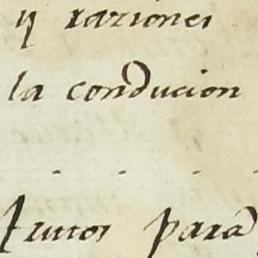 y raziones
la conducion
frutos para